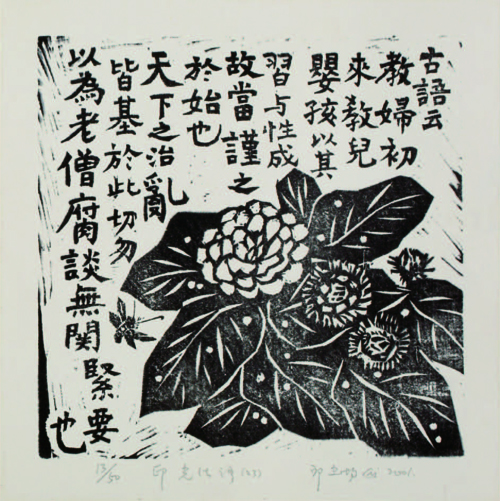 古語云
教婦初
來教兒
嬰孩以其
習与性成
故當謹之
於始也
天下之治亂
皆基於此切勿
以為老僧腐談無関緊要
也
印光法師